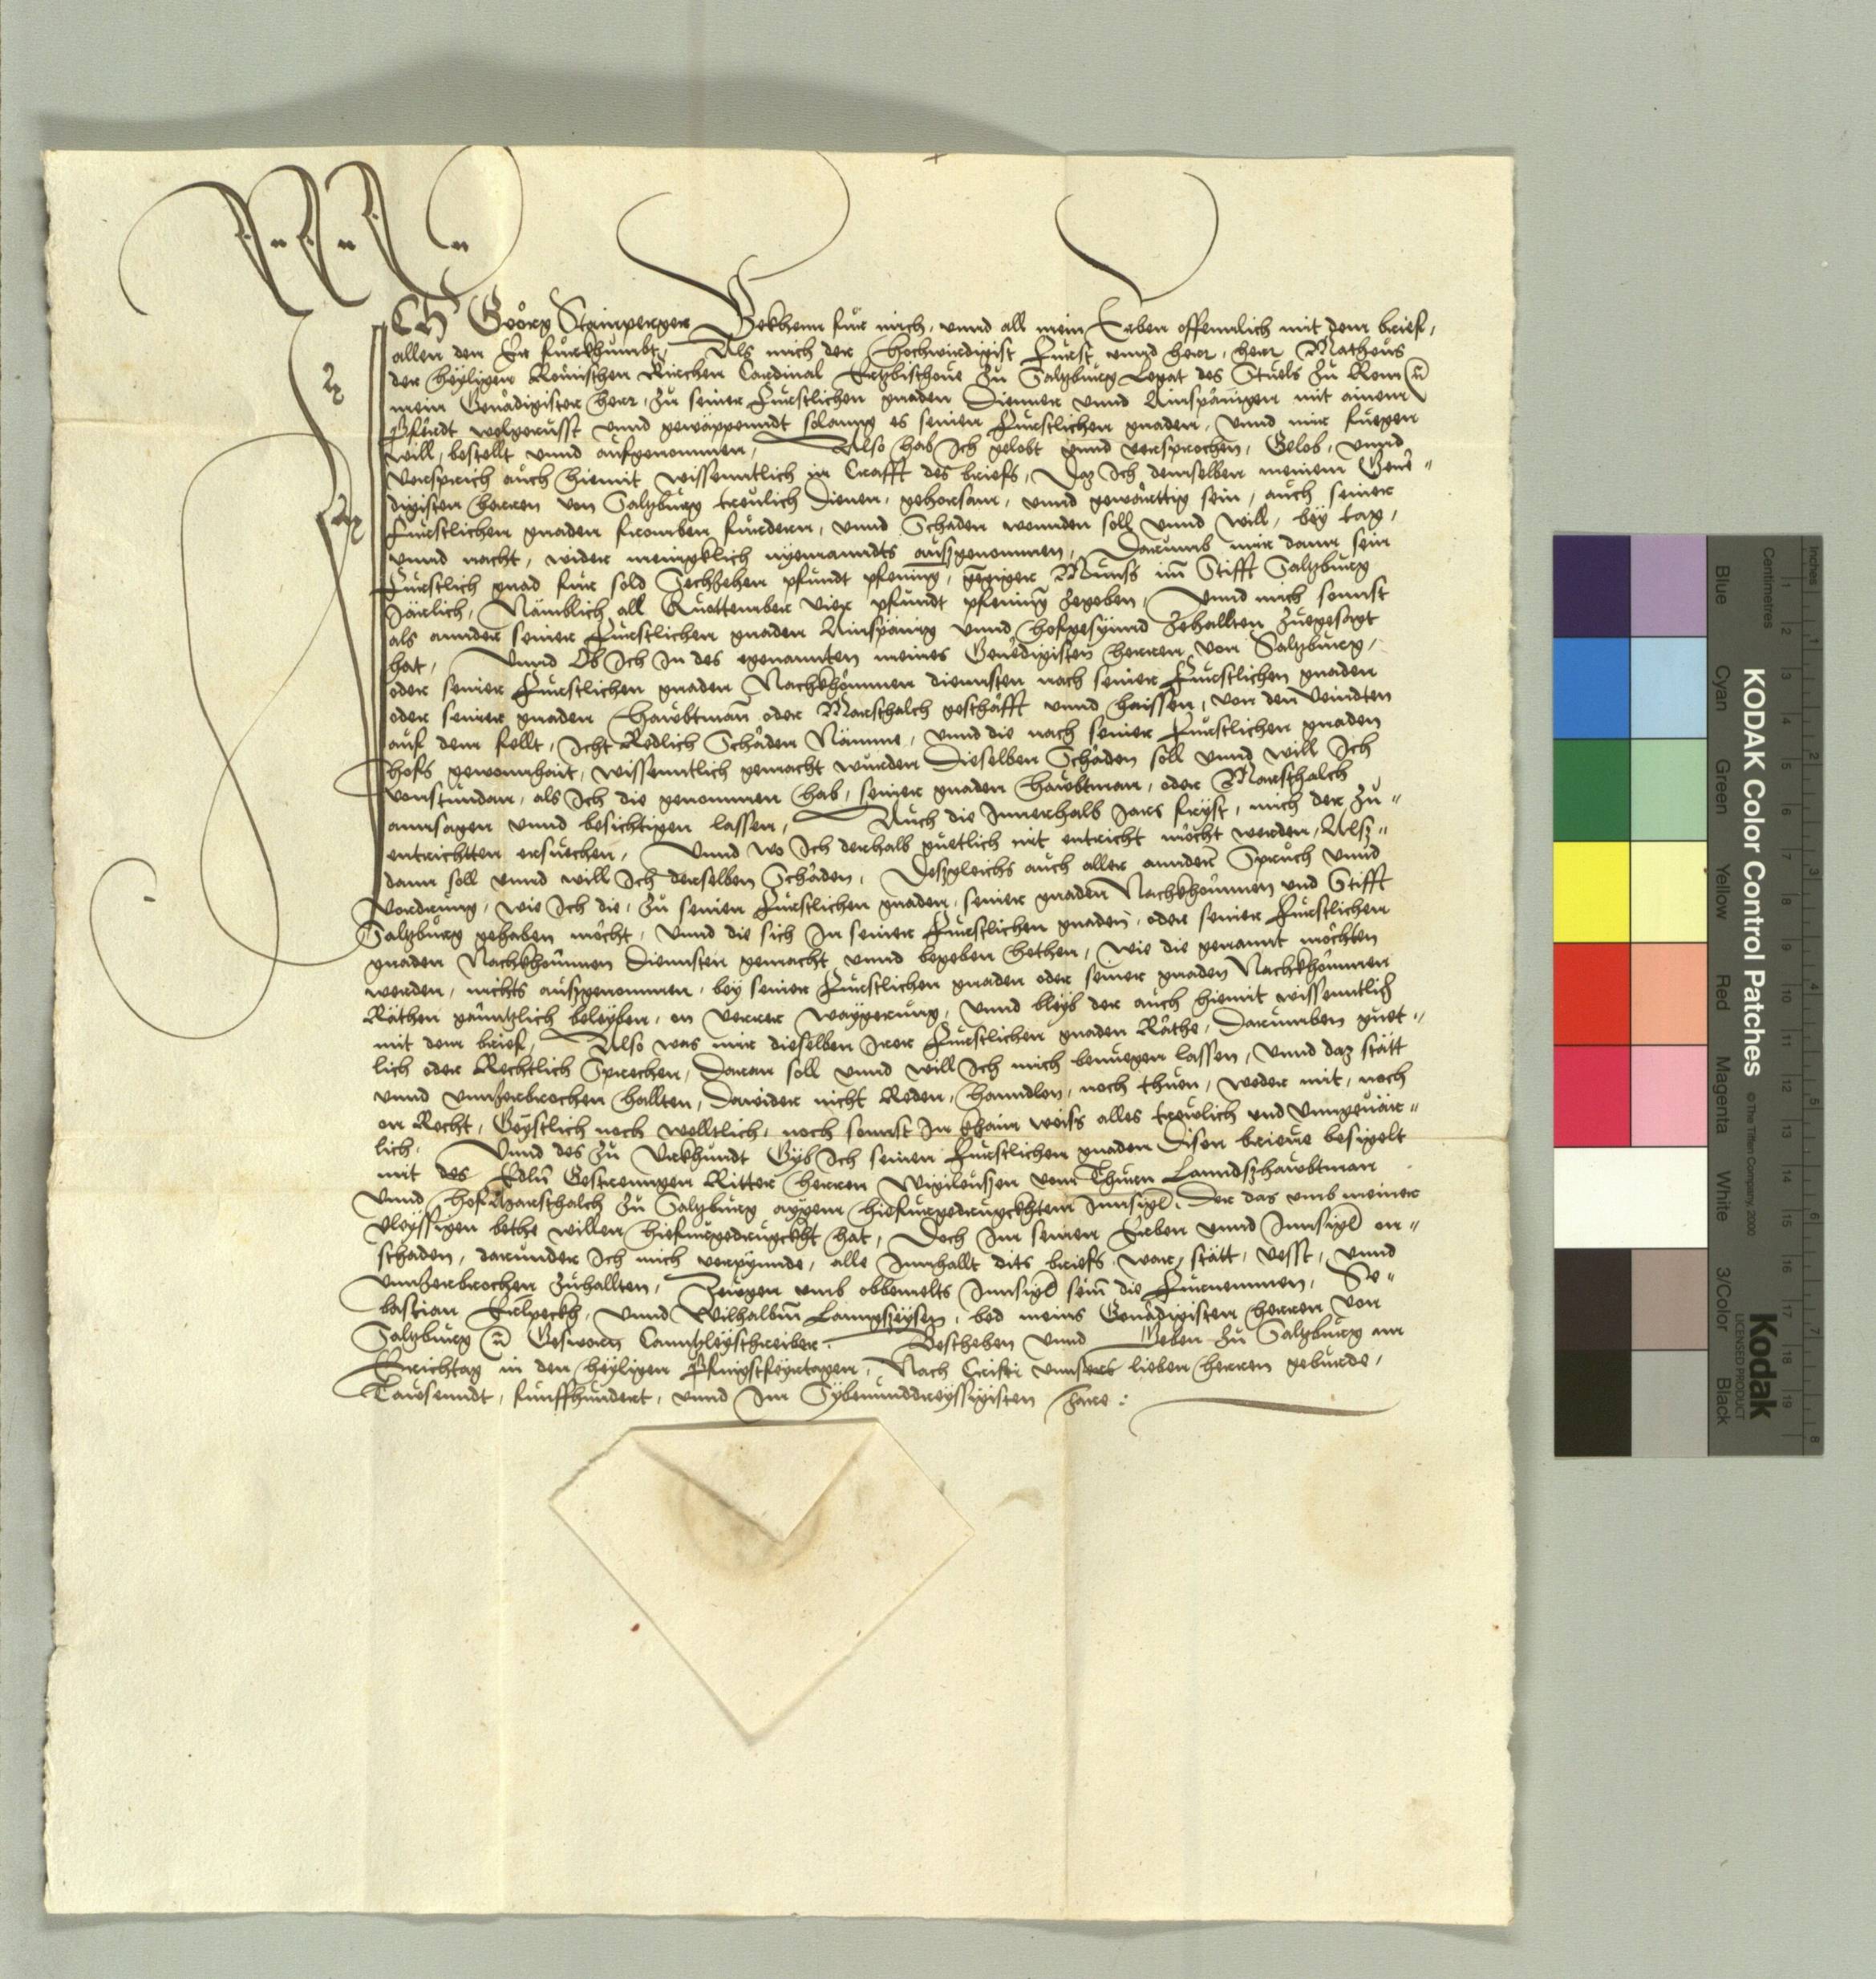 ICH Geörg Stainperger Bekhenn für mich, vnnd all mein Erben offennlich mit dem brief,
allen den Er fürkhumbt, Als mich der Hochwirdigist Fürst vnnd herr, herr Matheus
der heyligen Römischen Kirchen Cardinal Ertzbischoue zu Saltzburg Legat des Stuels zu Rom
mein Genädigister herr, zu seiner Fürstlichen gnaden Dienner vnnd Ainspänigen mit ainem
Pferdt wolgerüsst vnnd gewappenndt solanng es seinen Fürstlichen gnaden, vnnd mir fuegen
will, bestellt vnnd aufgenommen, Also hab Ich gelobt vnnd versprochen, Gelob, vnnd
versprich auch hiemit wissenntlich in Crafft des briefs, Daz Ich demselben meinem Gene„
digisten herren von Saltzburg treulich dienen, gehorsam, vnnd gewärttig sein, auch seiner
Fürstlichen gnaden fromben fürdern, vnnd Schaden wennden soll vnnd will, bey tag,
vnnd nacht, wider menigklich nyemanndts außgenommen, Darumb mir dann sein
Fürstlich gnad für sold Sechzehen pfundt pfening, Münss im Stifft Saltzburg
Järlich, Nämblich all Quottember vier pfundt pfening zegeben, Vnnd mich sonnst
als annder seiner Fürstlichen gnaden Ainspänig vnnd Hofgesynnd zehallten zuegesagt
hat, Vnnd Ob Ich in des egenannten meines Genedigisten herren von Saltzburg,
oder seiner Fürstlichen gnaden Nachkhömmen diennsten nach seiner Fürstlichen gnaden
oder seiner gnaden Hawbtman oder Marschalch geschäfft vnnd haissen, von den Veindten
auf dem fellt, Icht Redlich Schäden Nämme, vnnd die nach seiner Fürstlichen gnaden
hofs gewonnhait, wissenntlich gemacht wurden Dieselben Schäden soll vnnd will Ich
vonstundan, als Ich die genommen hab, seiner gnaden Hawbtman, oder Marschalch
annsagen vnnd besichtigen lassen, Auch die Innerhalb Jars fryst, mich der zu„
entrichtten ersuechen, Vnnd wo Ich derhalb guetlich nit entricht möcht werden, Alsz„
dann soll vnnd will Ich derselben Schäden, Deszgleichs auch aller annderr Spruch vnnd
Vordrung, wie Ich die, zu seinen Fürstlichen gnaden, seiner gnaden Nachkhömmen und Stifft
Saltzburg gehaben möcht, vnnd die sich in seiner Fürstlichen gnaden, oder seiner Fürstlichen
gnaden Nachkhömmen Diennsten gemacht vnnd begeben hethen, wie die genannt möchten
werden, nichts außgenommen, bey seiner Fürstlichen gnaden oder seiner gnaden Nachkhömmen
Räthen gänntzlich beleyben, on verrer waygerung, vnnd bleyb der auch hiemit wissenntlich
mit dem brief, Also was mir dieselben Irer Fürstlichen gnaden Räthe, Darumben guet„
lich oder Rechtlich Sprechen, Daran soll vnnd will Ich mich benuegen lassen, vnnd daz stätt
vnnd vnnzerbrochen hallten, Dawider nicht Reden, hanndlen, noch thuen, weder mit, noch
on Recht, Geystlich noch welltlich, noch sonnst In khain weiss alles trewlich und vnngeuär„
lich. Vnnd des zu Vrkhundt Gyb Ich seinen Fürstlichen gnaden Disen brieue besigelt
mit des Edln Gestrenngen Ritter herren Wigileusen vom Thurn Lanndszhawbtman
vnnd HofMarschalch zu Saltzburg aygem hiefürgedrugckhtem Innsigl, Der das vmb meiner
vleyssigen bethe willen hiefürgedrugckht hat, Doch Im seinen Erben vnnd Innsigl on„
schaden, darunder Ich mich verpynnde, alle Innhallt dits briefs war, stätt, vesst, vnnd
vnnzerbrochen zuhallten, Zeugen vmb obbemelts Innsigl sein die Fürnemmen, Se„
bastian Erlpeckh, vnnd Wilhalbm Lanngseysen, bed meins Genädigisten herren von
Saltzburg Gesworn Canntzleyschreiber. Beschehen vnnd Geben zu Saltzburg am
Erichtag in den heyligen Phingstfeyrtagen, Nach Cristi vnnsers lieben herren geburde,
Tawsenndt, fünffhundert, vnnd Im Sybenunddreyssigisten Jare :
KODAK Color Control Patches © The Tiffen Company, 2000
Kodak
LICENSED PRODUCT
Centimetres
Inches
Blue Cyan Green Yellow Red Magenta White 3/Color Black
1 2 3 4 5 6 7 8 9 10 11 12 13 14 15 16 17 18 19
1 2 3 4 5 6 7 8